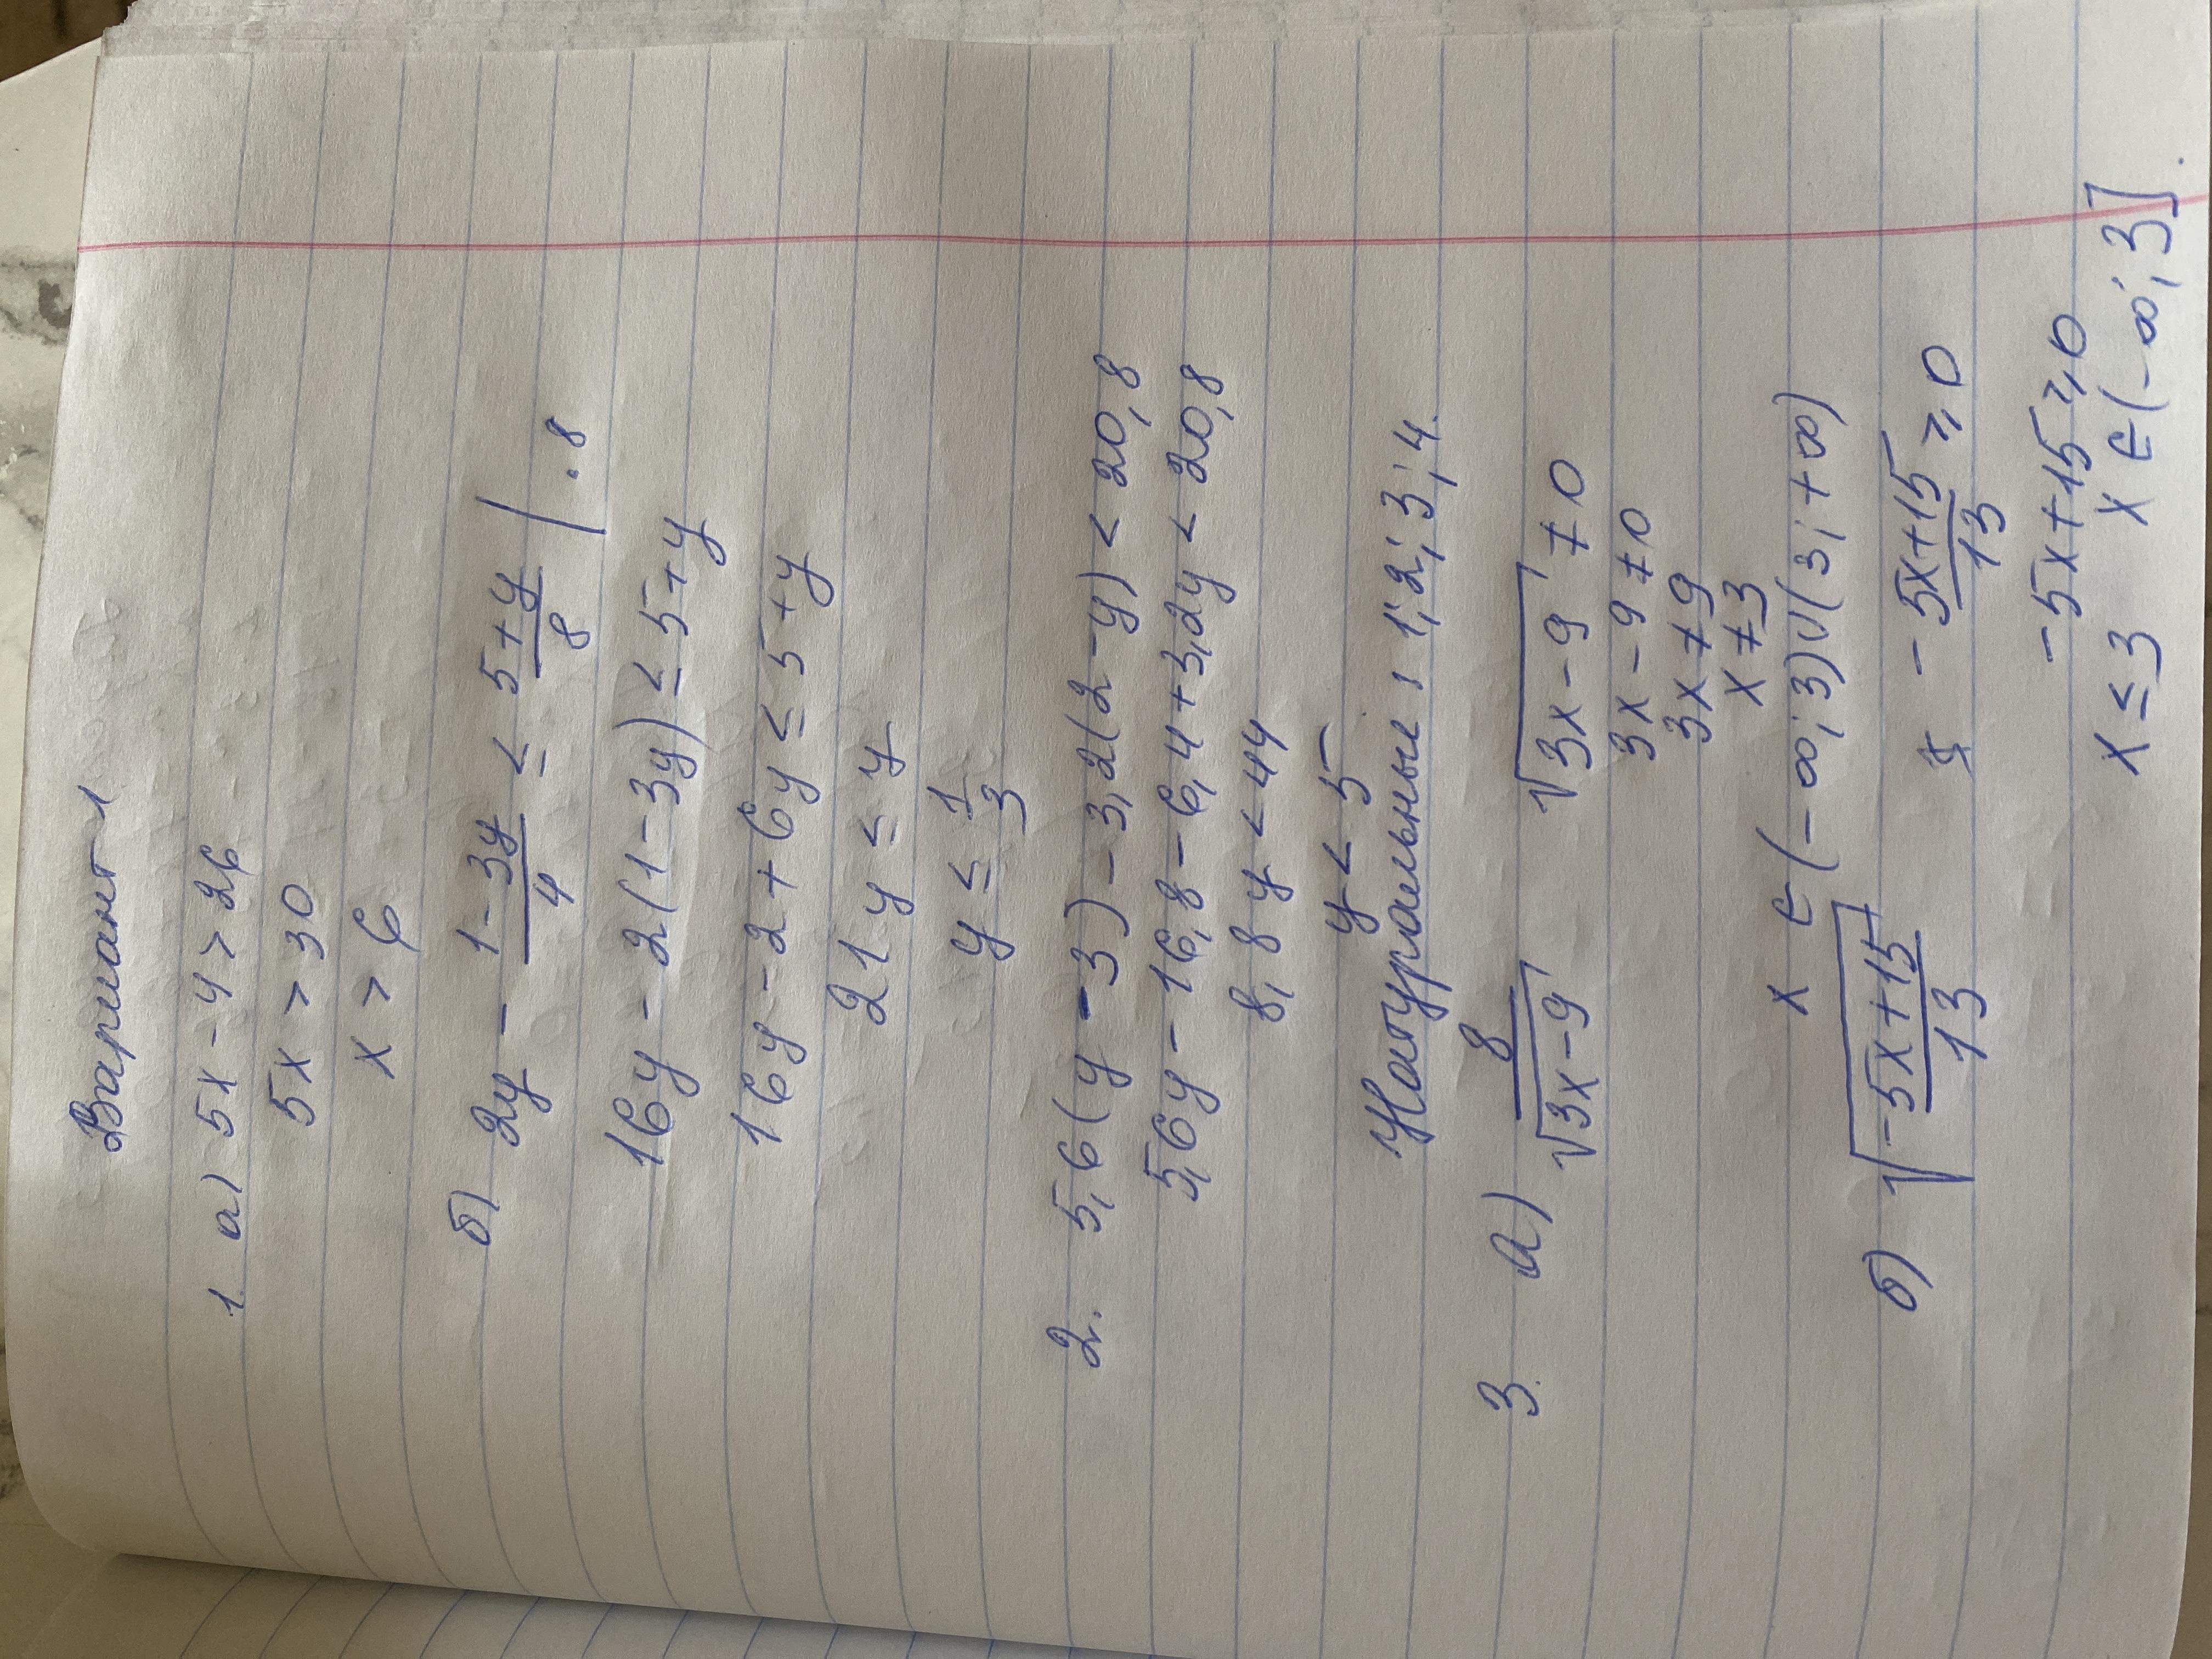 Вариант 1
1. а) 5x - 4 > 26
5x > 30
x > 6
б) 2y - \frac{1-3y}{4} ≤ \frac{5+y}{8} | · 8
16y - 2(1 - 3y) ≤ 5 + y
16y - 2 + 6y ≤ 5 + y
21y ≤ y
y ≤ \frac{1}{3}
2. 5,6(y - 3) - 3,2(2 - y) < 20,8
5,6y - 16,8 - 6,4 + 3,2y < 20,8
8,8y < 44
y < 5
Натуральные: 1; 2; 3; 4.
3. а) \frac{8}{√(3x-9)} √(3x-9) ≠ 0
3x - 9 ≠ 0
3x ≠ 9
x ≠ 3
x ∈ (-∞; 3) ∪ (3; +∞)
б) √(\frac{-5x+15}{13}) - \frac{5x+15}{13} ≥ 0
-5x + 15 ≥ 0
x ≤ 3 x ∈ (-∞; 3].